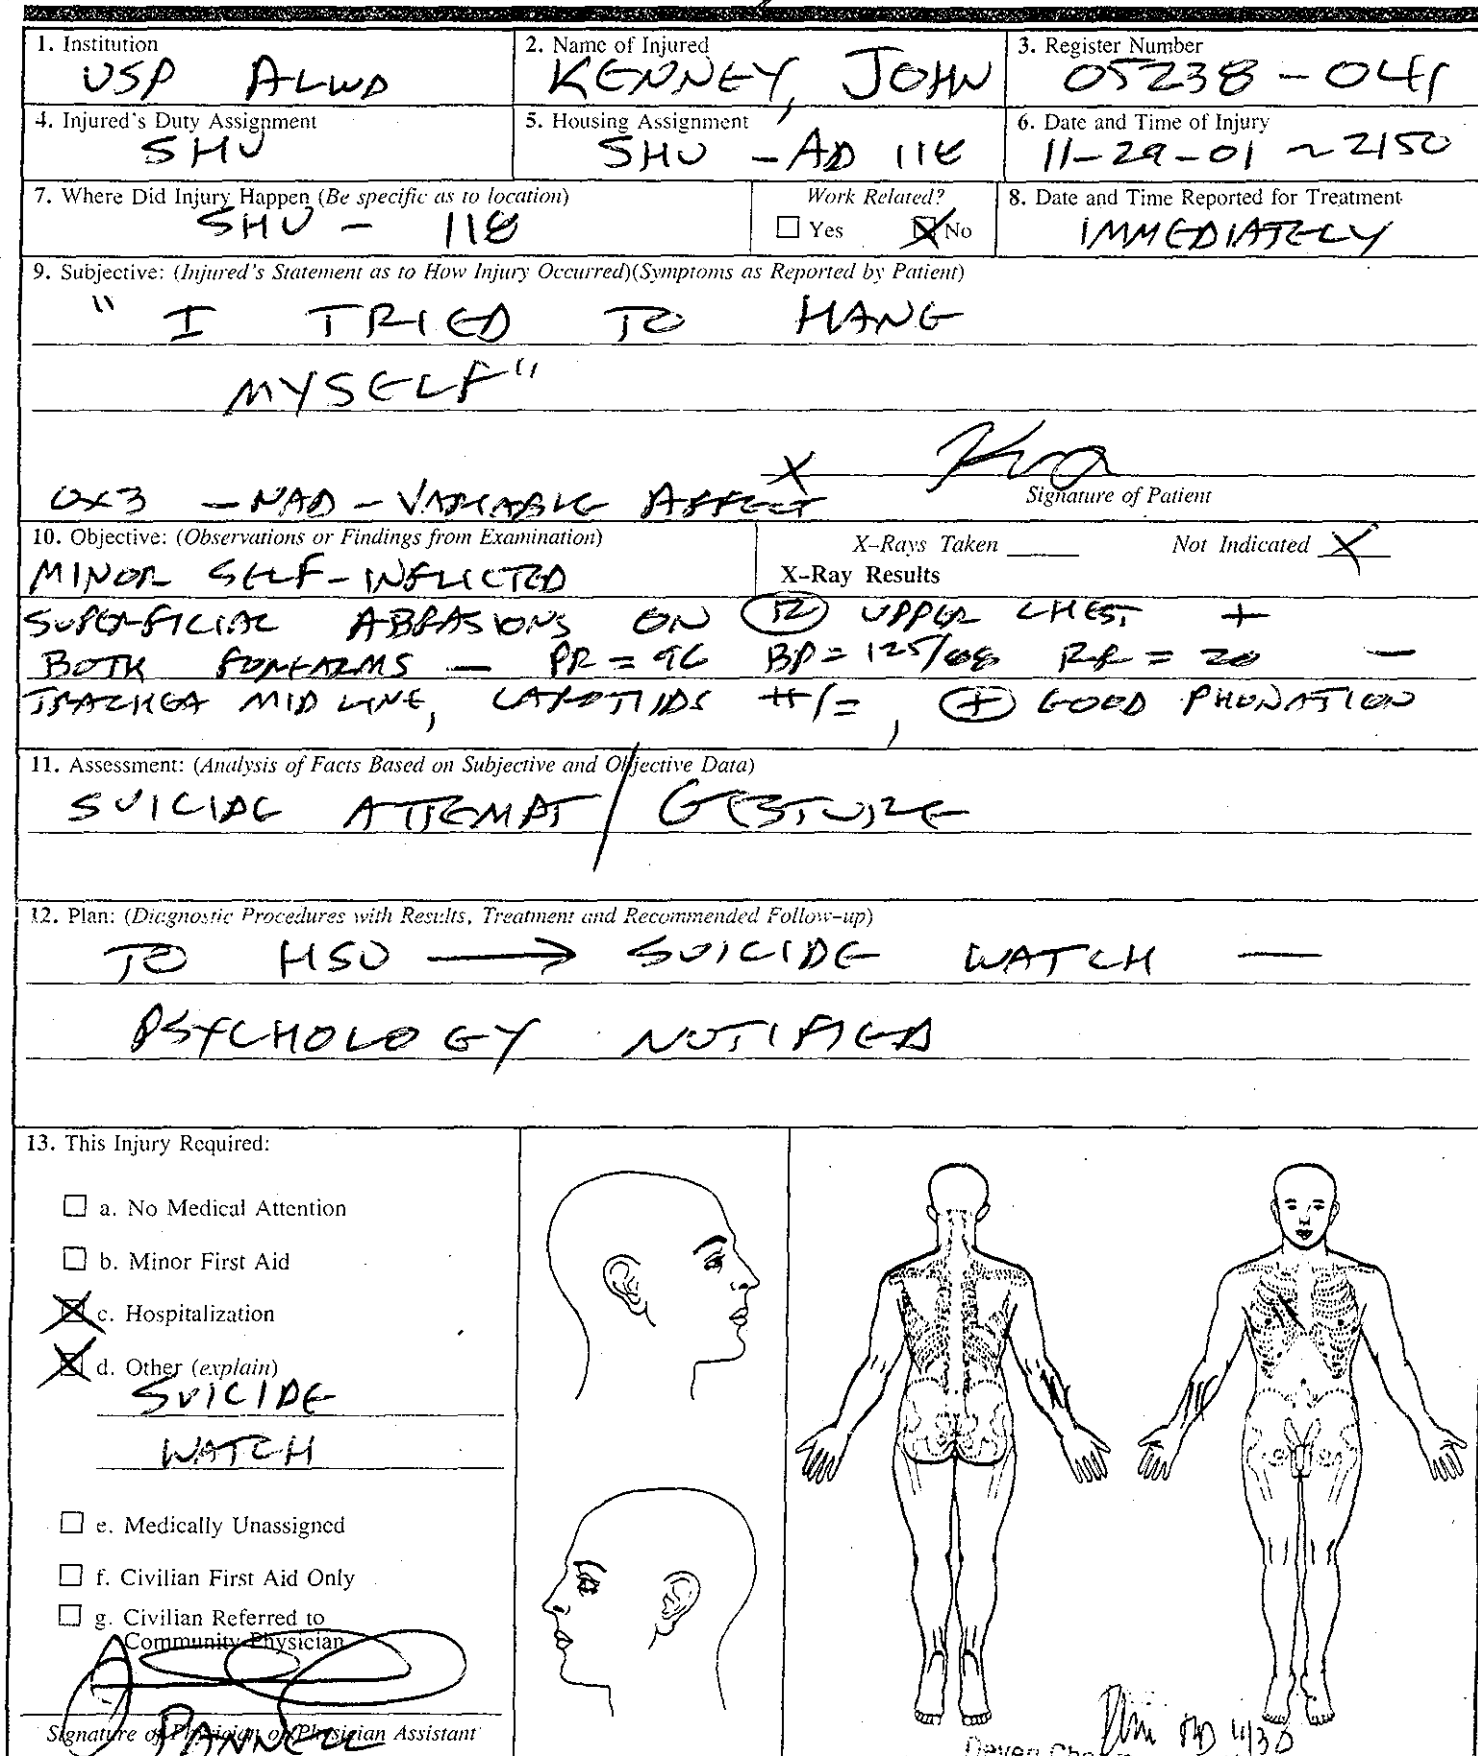 1. Institution
USP ALWD
2. Name of Injured
KENNEY, JOHN
3. Register Number
05238-041
4. Injured's Duty Assignment
SHU
5. Housing Assignment
SHU - AD 118
6. Date and Time of Injury
11-29-01 ~2150
7. Where Did Injury Happen (Be specific as to location)
SHU - 118
Work Related?
Yes No
8. Date and Time Reported for Treatment
IMMEDIATELY
9. Subjective: (Injured's Statement as to How Injury Occurred)(Symptoms as Reported by Patient)
"I TRIED TO HANG
MYSELF"
X
Signature of Patient
OX3 - NAD - VARIABLE AFFECT
10. Objective: (Observations or Findings from Examination)
X-Rays Taken Not Indicated X
X-Ray Results
MINOR SELF-INFLICTED
SUPERFICIAL ABRASIONS ON R UPPER CHEST +
BOTH FOREARMS - PR = 96 BP = 125/68 RR = 20 -
TRACHEA MID LINE, CAROTIDS +/=, + GOOD PHONATION
11. Assessment: (Analysis of Facts Based on Subjective and Objective Data)
SUICIDE ATTEMPT / GESTURE
12. Plan: (Diagnostic Procedures with Results, Treatment and Recommended Follow-up)
TO HSU → SUICIDE WATCH -
PSYCHOLOGY NOTIFIED
13. This Injury Required:
a. No Medical Attention
b. Minor First Aid
c. Hospitalization
d. Other (explain)
SUICIDE
WATCH
e. Medically Unassigned
f. Civilian First Aid Only
g. Civilian Referred to
Community Physician
Signature of Physician or Physician Assistant
PANNELL
MD 11/30